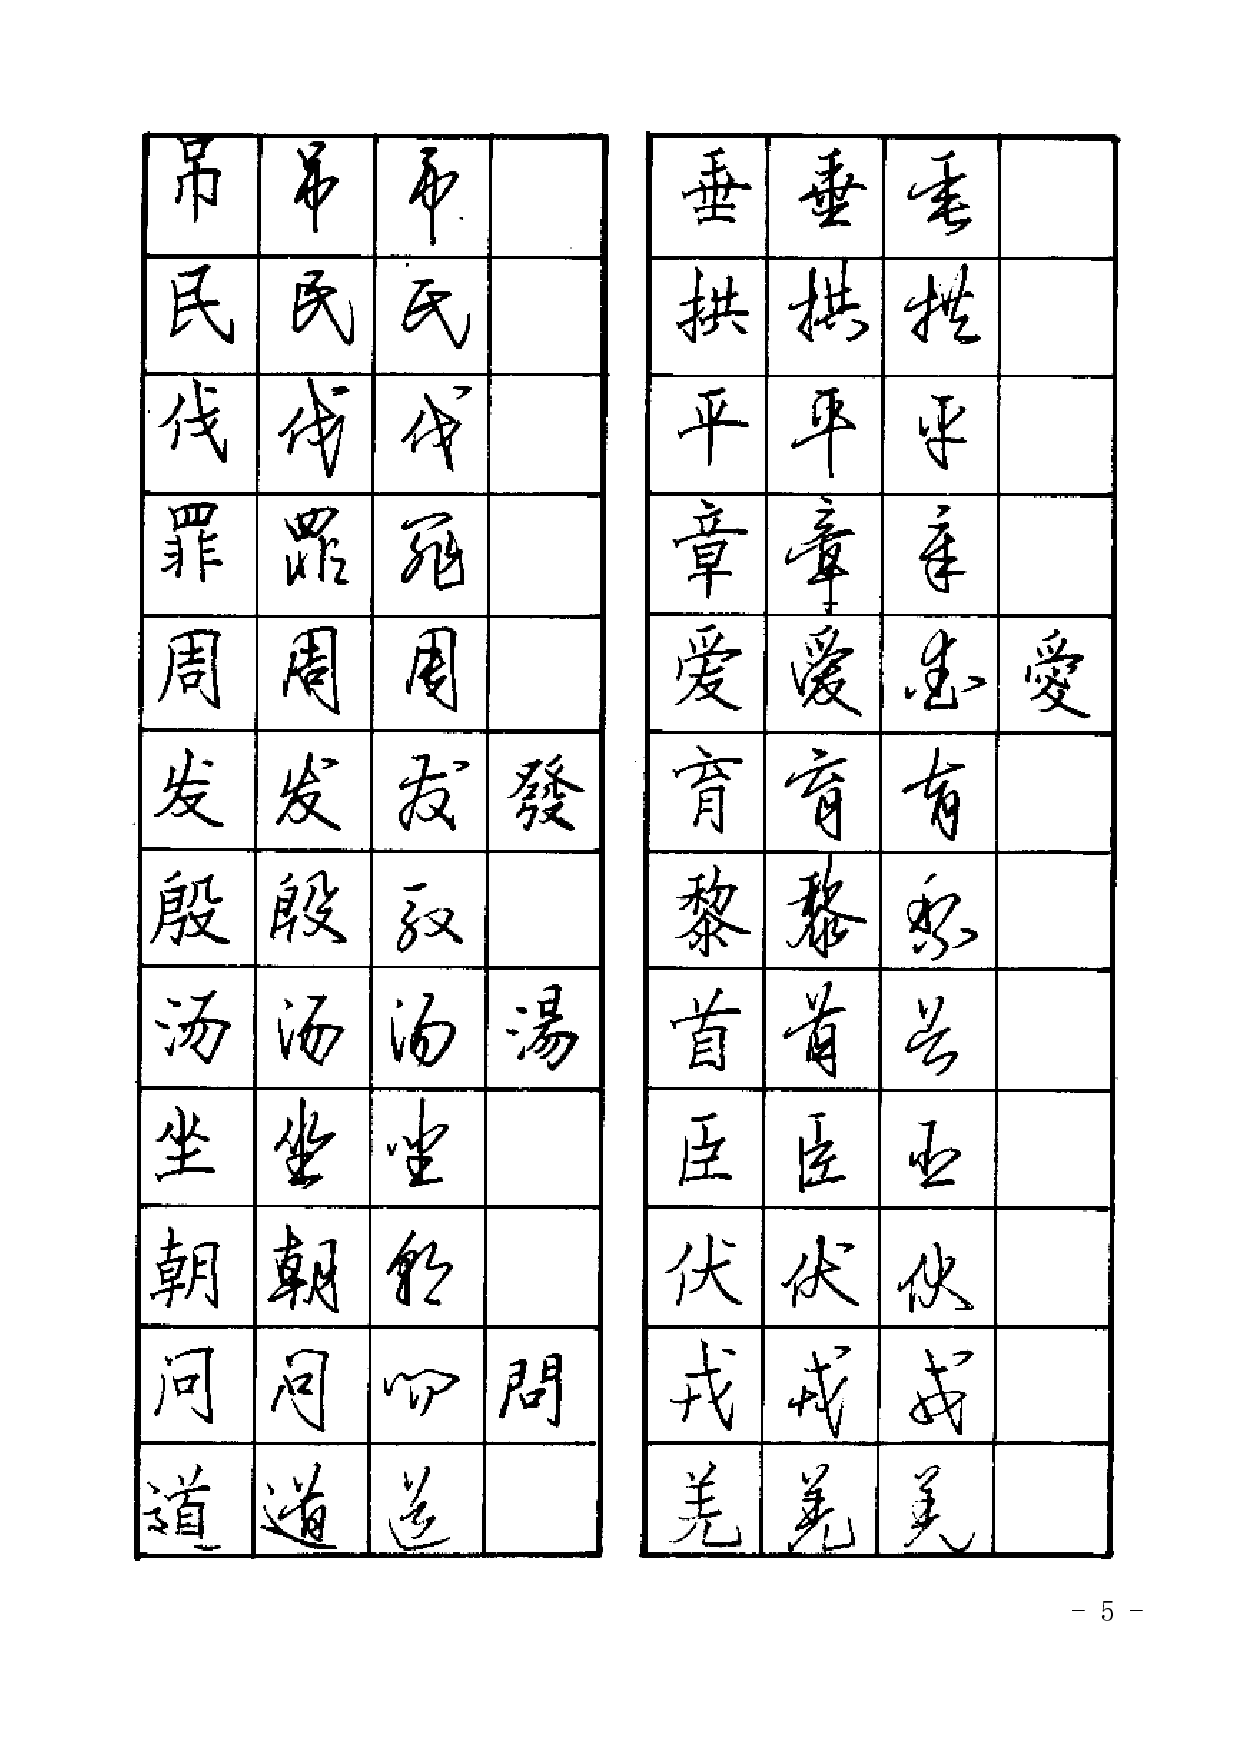 吊 吊 吊
民 民 民
伐 伐 伐
罪 罪 罪
周 周 周
发 发 发 發
殷 殷 殷
汤 汤 汤 湯
坐 坐 坐
朝 朝 朝
问 问 问 問
道 道 道
垂 垂 垂
拱 拱 拱
平 平 平
章 章 章
爱 爱 爱 愛
育 育 育
黎 黎 黎
首 首 首
臣 臣 臣
伏 伏 伏
戎 戎 戎
羌 羌 羌
- 5 -